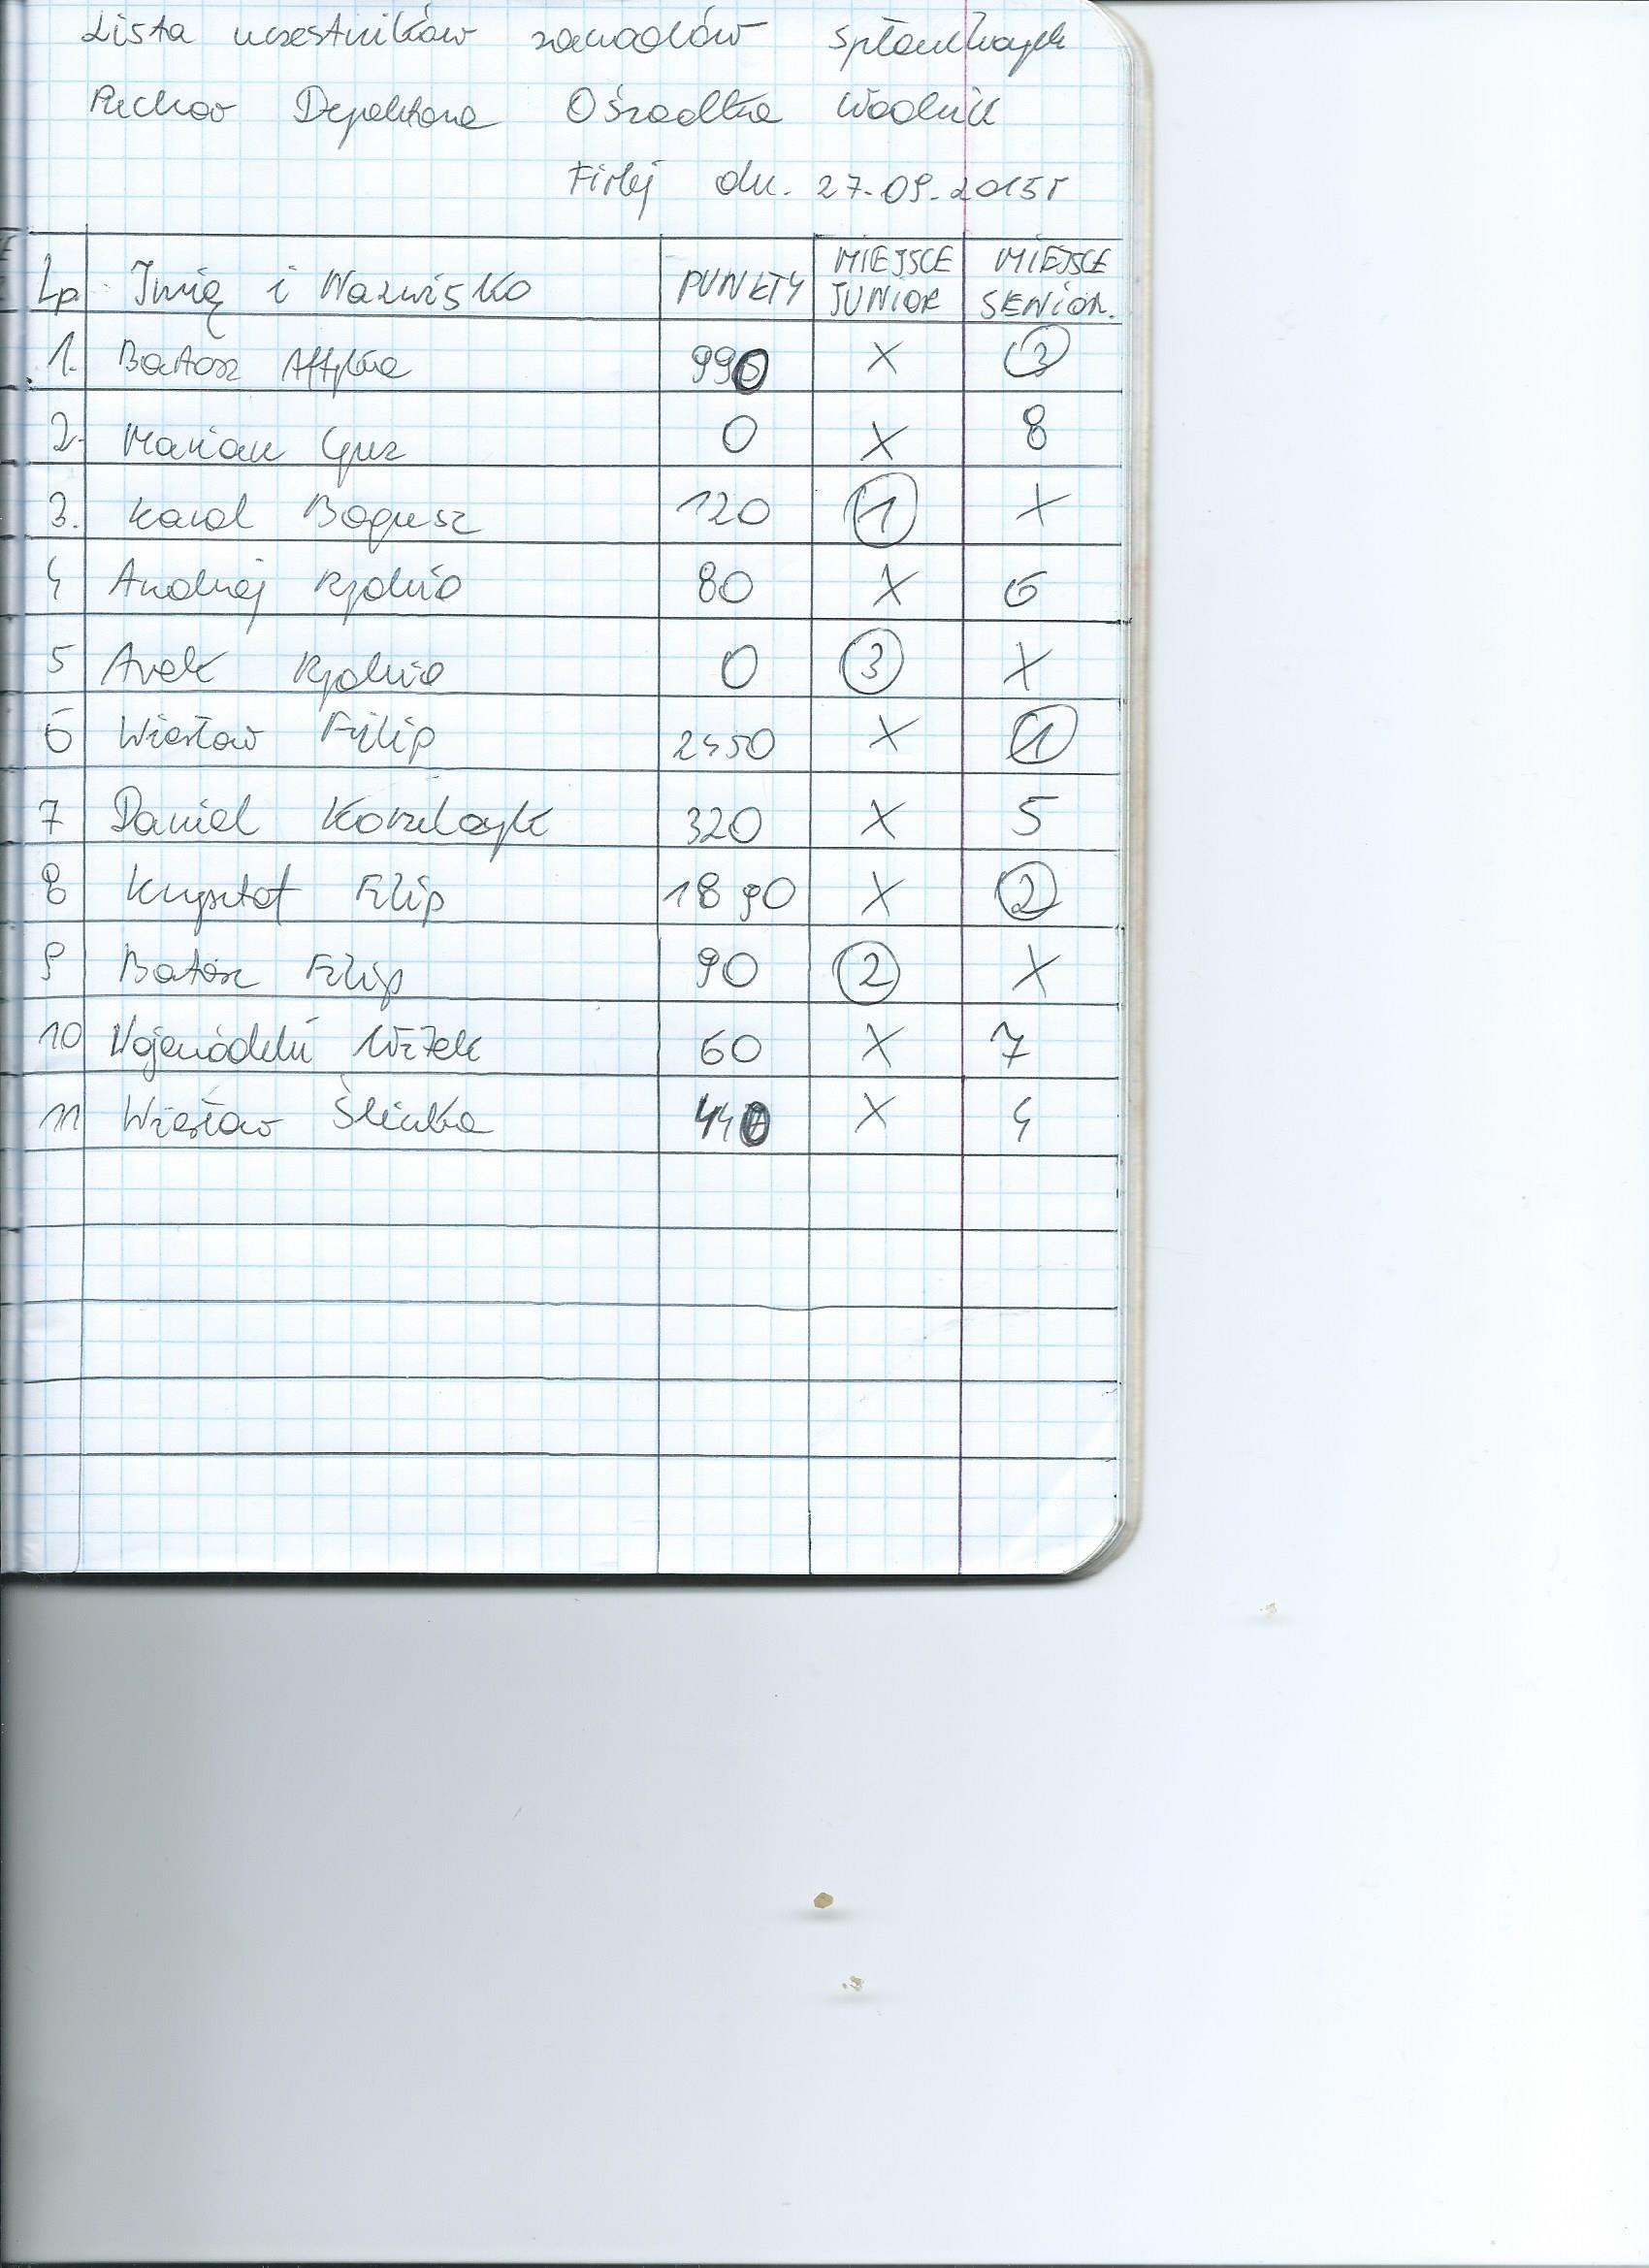 Lista uczestników zawodów spławikowych
Puchar Dyrektora Ośrodka Wodnik
Firlej dn. 27.09.2015r
Lp. Imię i Nazwisko PUNKTY MIEJSCE JUNIOR MIEJSCE SENIOR.
1. Bartosz 990 X 3
2. Marian Guz 0 X 8
3. Karol Bogusz 120 1 X
4 Andrzej 80 X 6
5 Arek 0 3 X
6 Wiesław Filip 2450 X 1
7 Daniel 320 X 5
8 Krzysztof Filip 1890 X 2
9 Bartosz Filip 90 2 X
10 60 X 7
11 Wiesław Śliwka 440 X 4